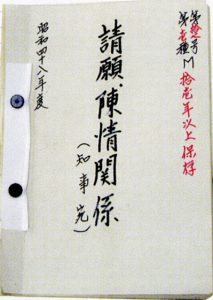 第 号
第 種 M 拾 年以上保存
請願、陳情関係
(知事宛)
昭和四十八年度